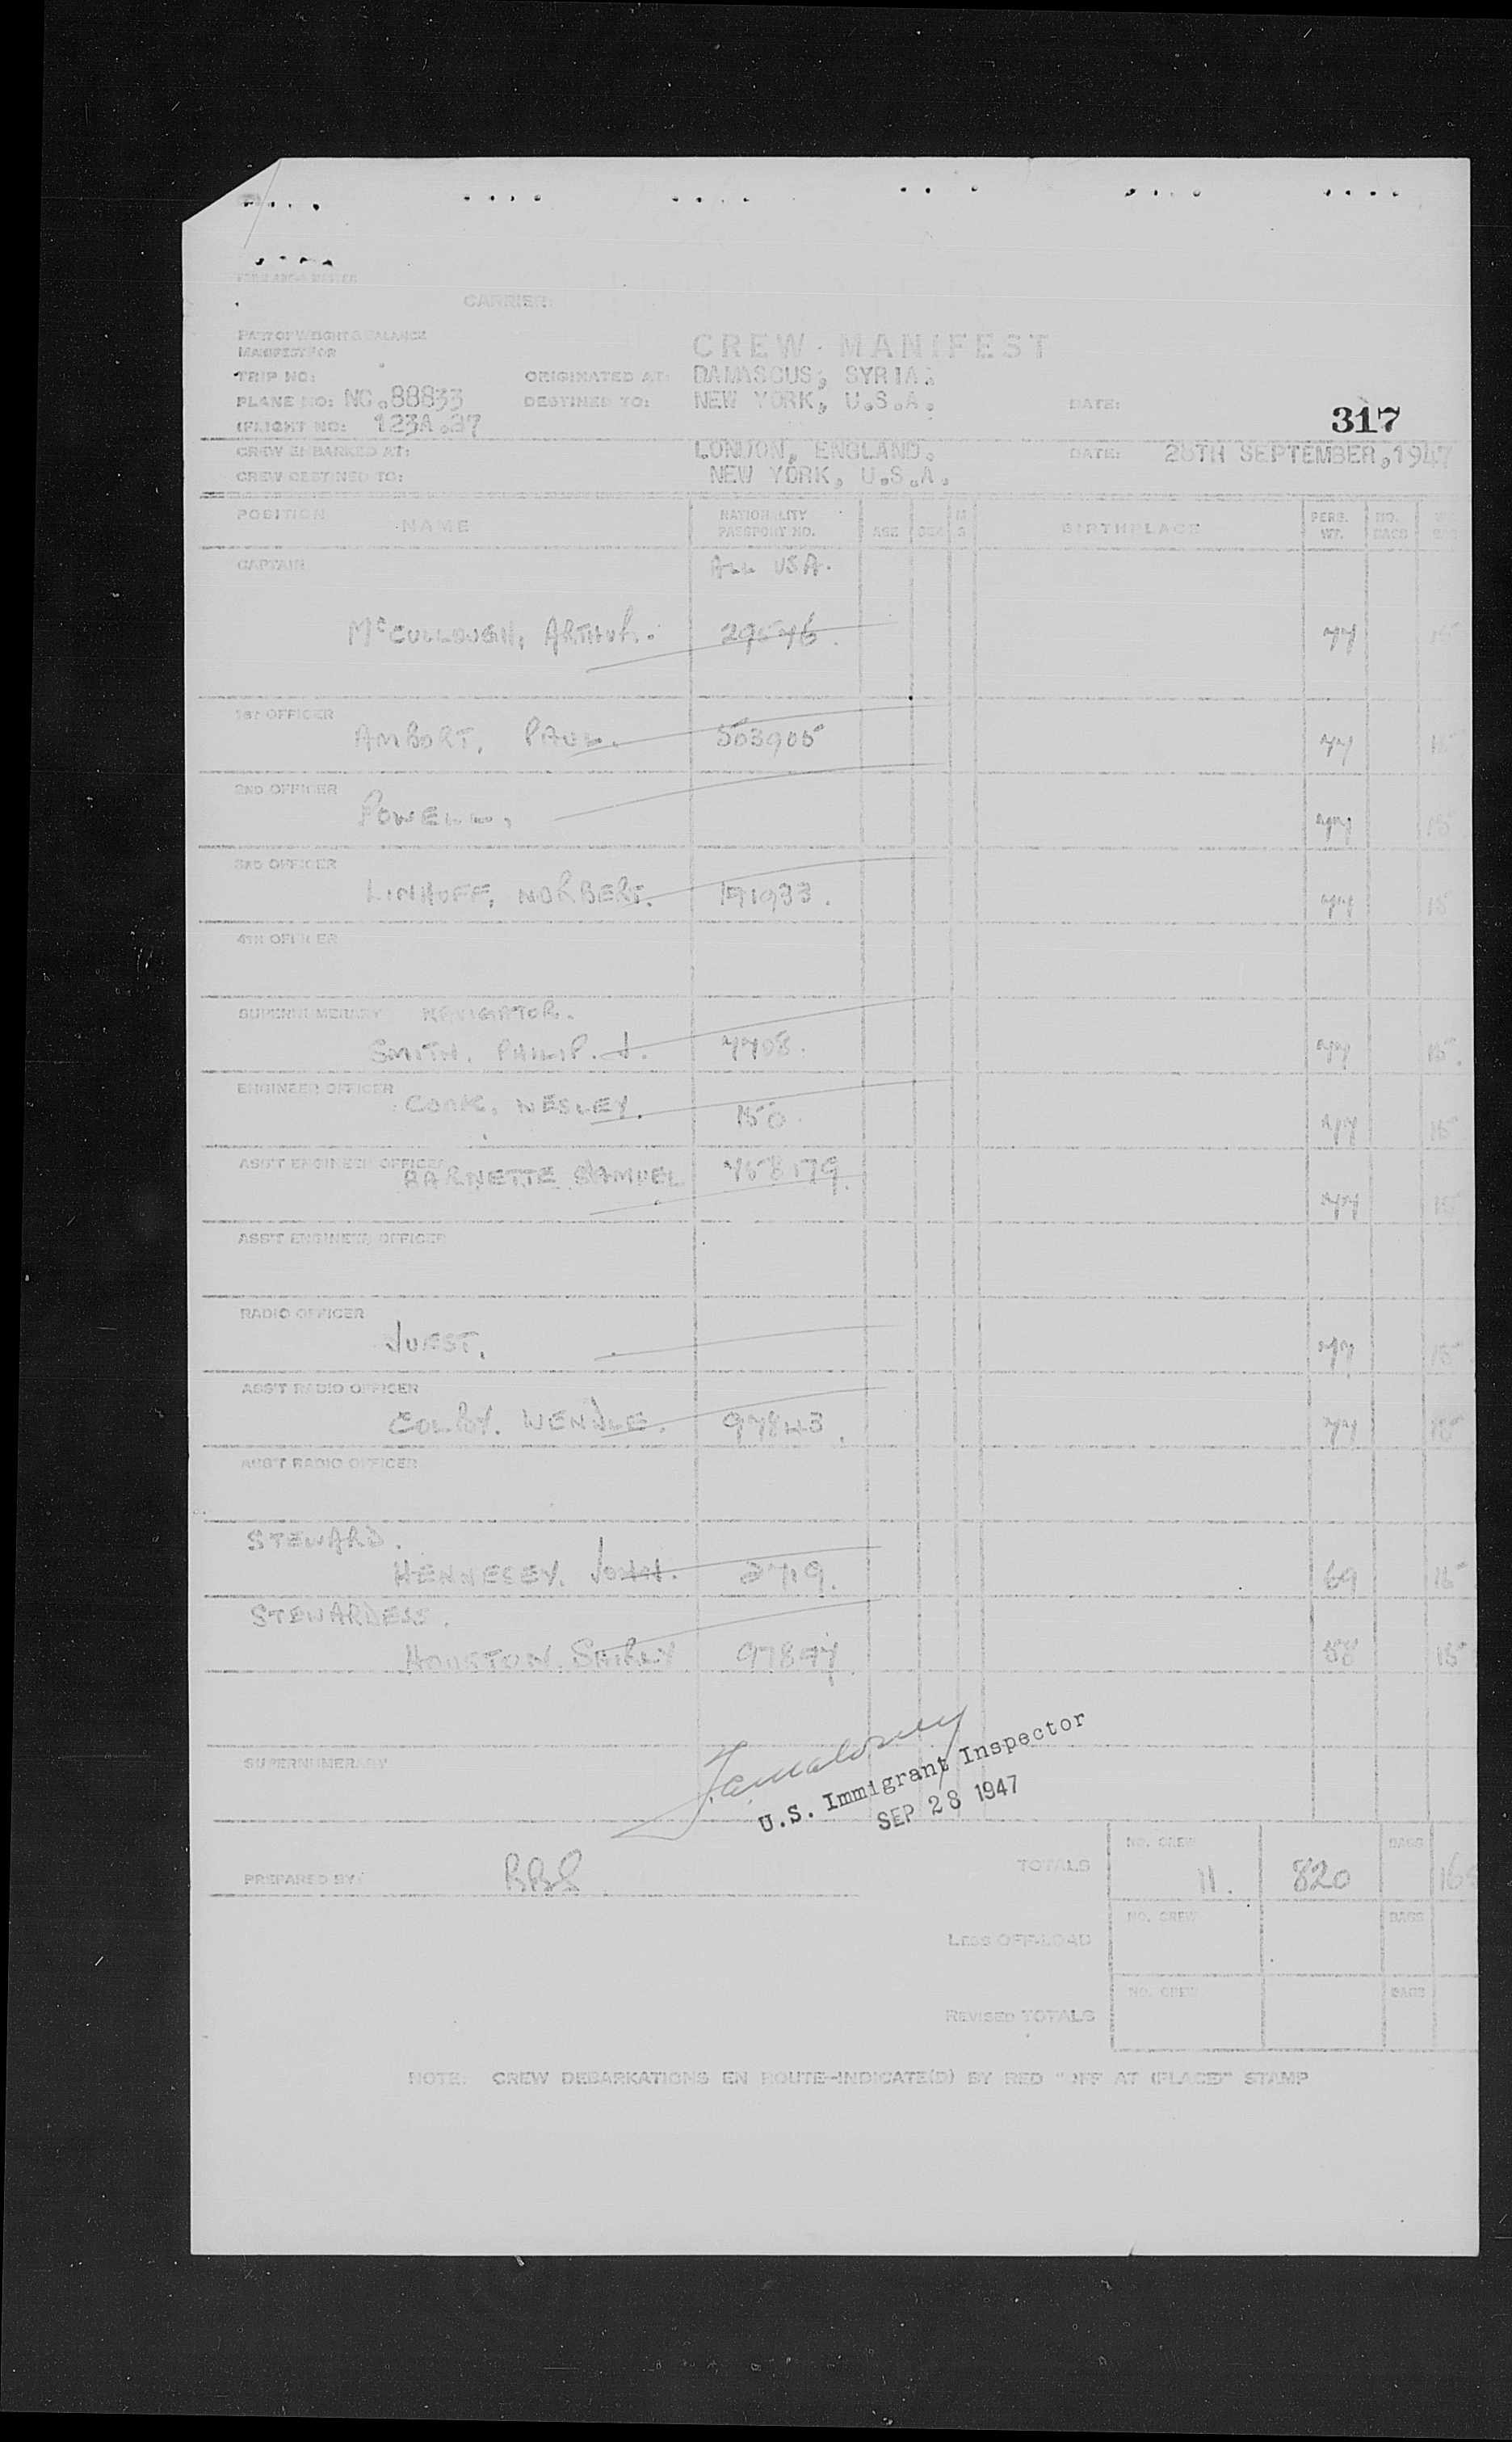 CARRIER:
PART OF WEIGHT & BALANCE
MANIFEST FOR
CREW MANIFEST
TRIP NO: ORIGINATED AT: DAMASCUS, SYRIA.
PLANE NO: NC.88833 DESTINED TO: NEW YORK, U.S.A. DATE: 317
FLIGHT NO: 123A.27
CREW EMBARKED AT: LONDON, ENGLAND. DATE: 28TH SEPTEMBER, 1947
CREW DESTINED TO: NEW YORK, U.S.A.
POSITION NAME NATIONALITY PASSPORT NO. AGE SEX M S BIRTHPLACE PERS. WT. NO. BAGS
CAPTAIN ALL USA.
McCULLOUGH, ARTHUR. 29546. 77 15
1ST OFFICER
AMBORT, PAUL. 503905 77 15
2ND OFFICER
POWELL, 77 15
3RD OFFICER
LINHOFF, NORBERT. 191933. 77 15
4TH OFFICER
SUPERNUMERARY NAVIGATOR.
SMITH, PHILIP. J. 7708. 77 15.
ENGINEER OFFICER
COOK, WESLEY. 150. 77 15
ASS'T ENGINEER OFFICER
BARNETTE SAMUEL 758179. 77 15
ASS'T ENGINEER OFFICER
RADIO OFFICER
JUEST, 77 15
ASS'T RADIO OFFICER
COLBY, WENDLE. 97843. 77 15
ASS'T RADIO OFFICER
STEWARD.
HENNESEY, JOHN. 2719. 69 15
STEWARDESS.
HOUSTON, SHIRLEY 97897. 58 15
SUPERNUMERARY
U.S. Immigrant Inspector
SEP 28 1947
PREPARED BY: BBS TOTALS NO. CREW 11. 820 BAGS
LESS OFF-LOAD NO. CREW BAGS
REVISED TOTALS NO. CREW BAGS
NOTE: CREW DEBARKATIONS EN ROUTE-INDICATE(D) BY RED "OFF AT (PLACE)" STAMP